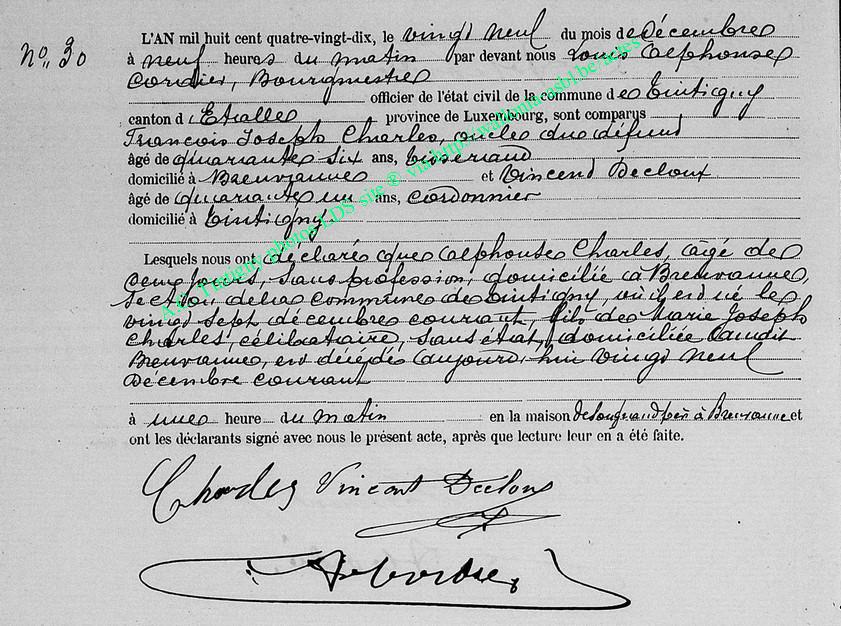 No. 30
L'AN mil huit cent quatre-vingt-dix, le vingt neuf du mois de Décembre
à neuf heures du matin par devant nous Louis Alphonse
Cordier, Bourgmestre
officier de l'état civil de la commune de Tintigny
canton d'Etalle province de Luxembourg, sont comparus
François Joseph Charles, oncle du défunt
âgé de quarante six ans, tisserand
domicilié à Breuvanne et Vincent Decloux
âgé de quarante un ans, cordonnier
domicilié à Tintigny
Lesquels nous ont déclaré que Alphonse Charles, âgé de
deux jours, sans profession, domicilié à Breuvanne,
section de la commune de Tintigny, où il est né le
vingt sept décembre courant, fils de Marie Joseph
Charles, célibataire, sans état, domiciliée audit
Breuvanne, est décédé aujourd'hui vingt neuf
Décembre courant
à une heure du matin en la maison de son grand père à Breuvanne et
ont les déclarants signé avec nous le présent acte, après que lecture leur en a été faite.
Charles Vincent Decloux
A.C. Tintigny photos LDS site ® via http://wallonia-asbl.be/actes